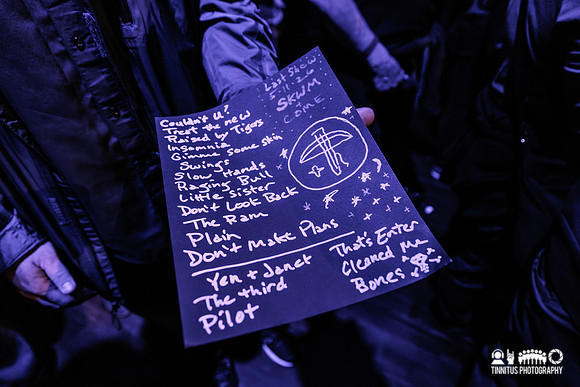 Couldn't U?
Treat the new
Raised by Tigers
Insomnia
Gimme some skin
Swings
Slow Hands
Raging Bull
Little Sister
Don't Look Back
The Ram
Plain
Don't Make Plans
Yen + Janet
The third
Pilot
Last Show
5-11-26
SKWM
COME
That's Enter
Cleaned Me
Bones
TINNITUS PHOTOGRAPHY